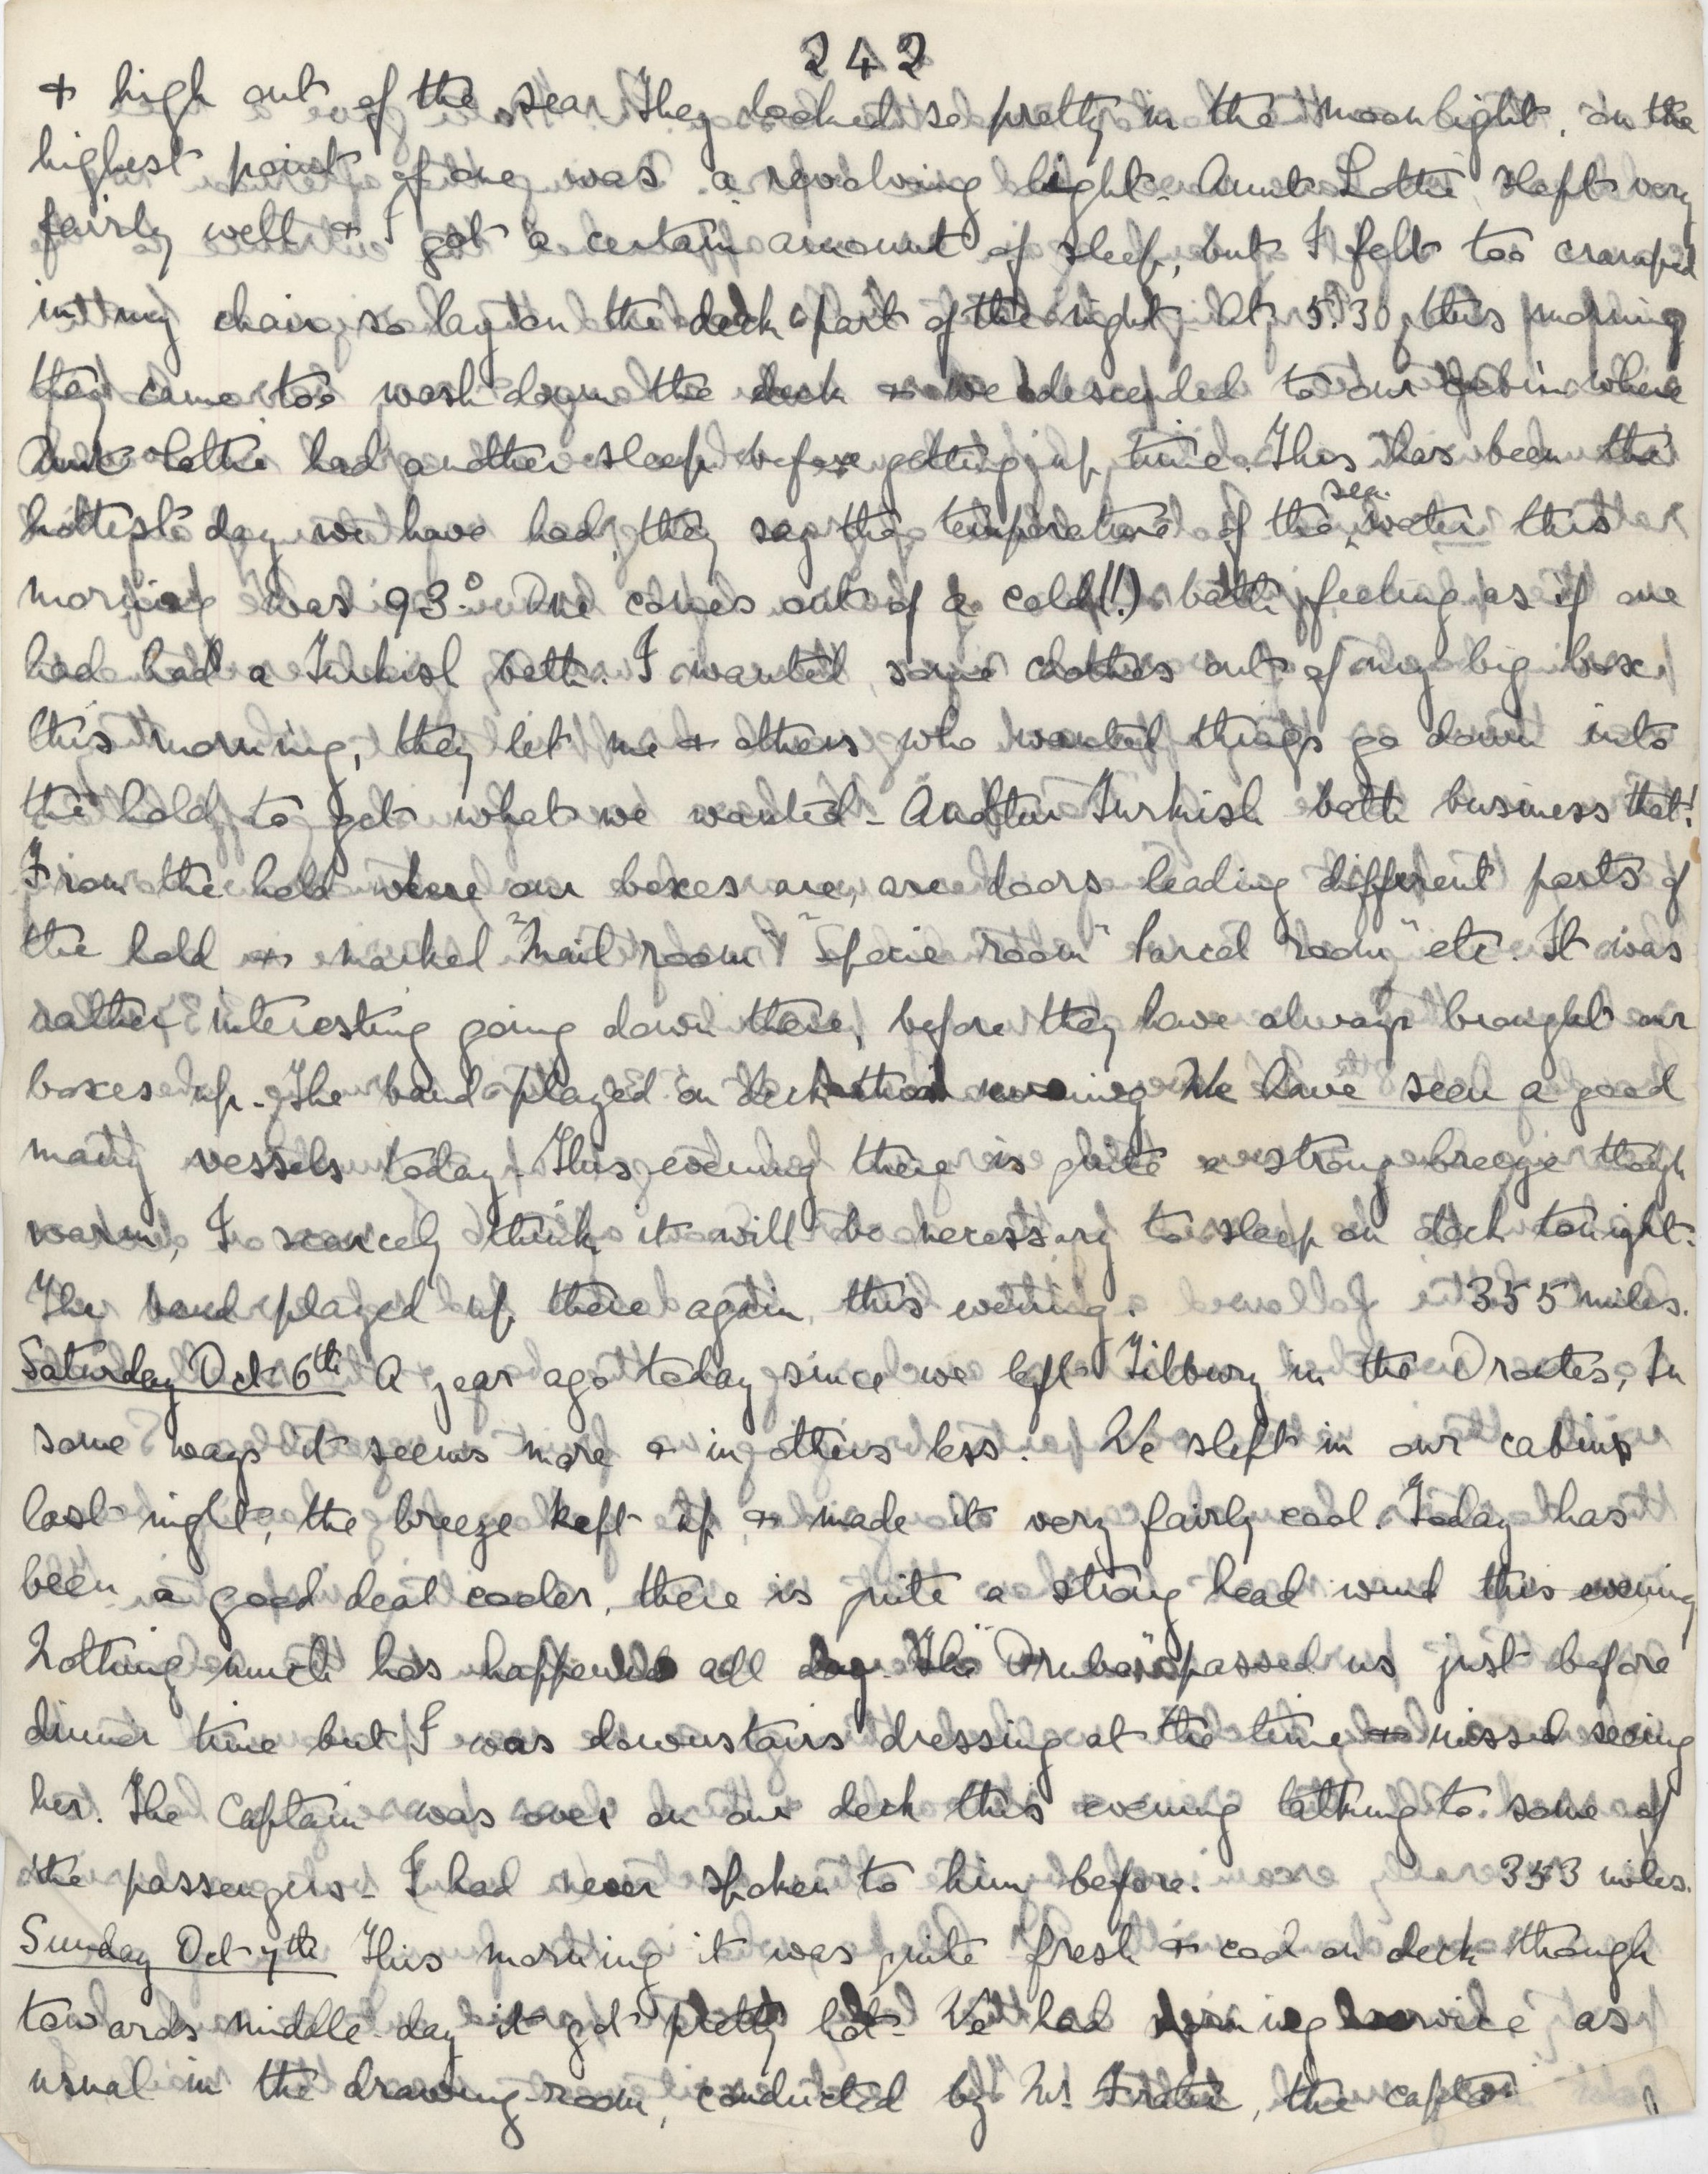 242
+ high out of the sea. They looked so pretty in the moonlight, on the
highest point of one was a revolving light. Aunt Lottie slept very
fairly well + I got a certain amount of sleep, but I felt too cramped
in my chair, so lay on the deck part of the night. At 5.30 this morning
they came too wash down the deck + we descended to our cabin where
Aunt Lottie had another sleep before getting up time. This has been the
hottest day we have had, they say the temperature of the sea water this
morning was 93°. One comes out of a cold (!!) bath feeling as if one
had had a Turkish bath. I wanted some clothes out of my big box
this morning, they let me + others who wanted things go down into
the hold to get what we wanted - Another Turkish bath business that!
From the hold where our boxes are, are doors leading different parts of
the hold + marked "Mail room" "Specie room" "Parcel room" etc. It was
rather interesting going down there, before they have always brought our
boxes up. The band played on deck this morning We have seen a good
many vessels today. This evening there is quite a strong breeze though
warm, I scarcely think it will be necessary to sleep on deck tonight.
The band played up there again this evening. 355 miles.
Saturday Oct 6th A year ago today since we left Tilbury in the Orontes, In
some ways it seems more + in others less. We slept in our cabins
last night, the breeze kept up + made it very fairly cool. Today has
been a good deal cooler, there is quite a strong head wind this evening
Nothing much has happened all day. The "Oruba" passed us just before
dinner time but I was downstairs dressing at the time + missed seeing
her. The Captain was over on our deck this evening talking to some of
the passengers - I had never spoken to him before. 353 miles.
Sunday Oct 7th This morning it was quite fresh + cool on deck though
towards middle-day it got pretty hot. We had morning service as
usual in the drawing-room, conducted by Mr. , the